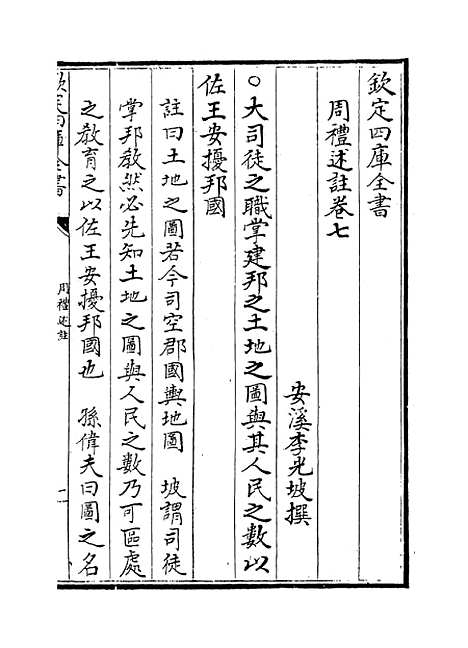 欽定四庫全書
周禮述註卷七
安溪李光坡撰
○大司徒之職掌建邦之土地之圖與其人民之數以
佐王安擾邦國
註曰土地之圖若今司空郡國輿地圖　坡謂司徒
掌邦教然必先知土地之圖與人民之數乃可區處
之教育之以佐王安擾邦國也　孫偉夫曰圖之名
欽定四庫全書
周禮述註